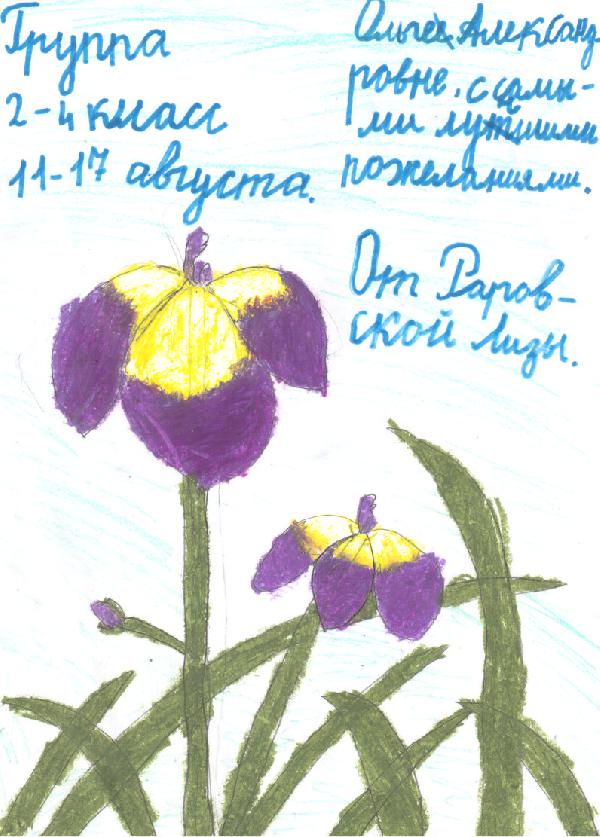 Группа
2-4 класс
11-17 августа.
Ольге Александ-
ровне, с самы-
ми лучшими
пожеланиями.
От Раров-
ской Лизы.